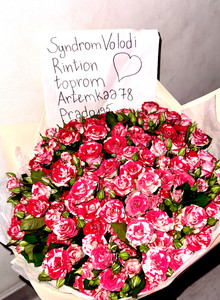 SyndromVolodi
Rintion
toprom
Artemka278
Prado95